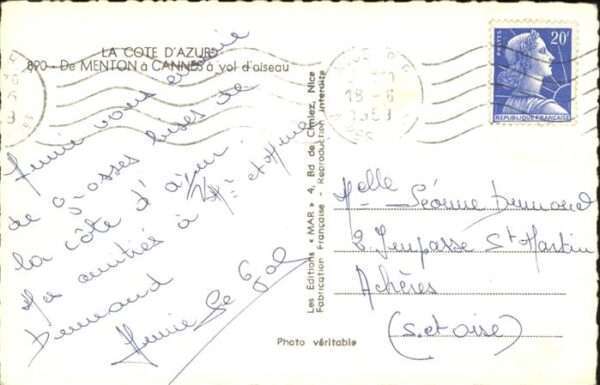 LA COTE D'AZUR
890 - De MENTON à CANNES à vol d'oiseau
Annie vous envoie
de grosses bises de
la côte d'azur.
Mes amitiés à Mr et Mme
Dumand
Annie Le Gal
Les Editions "MAR" 4, Bd de Cimiez, Nice
Fabrication Française - Reproduction Interdite
Photo véritable
POSTES
20F
REPUBLIQUE FRANÇAISE
18 - 6
Melle
2 Impasse St Martin
Achères
(S. et oise)